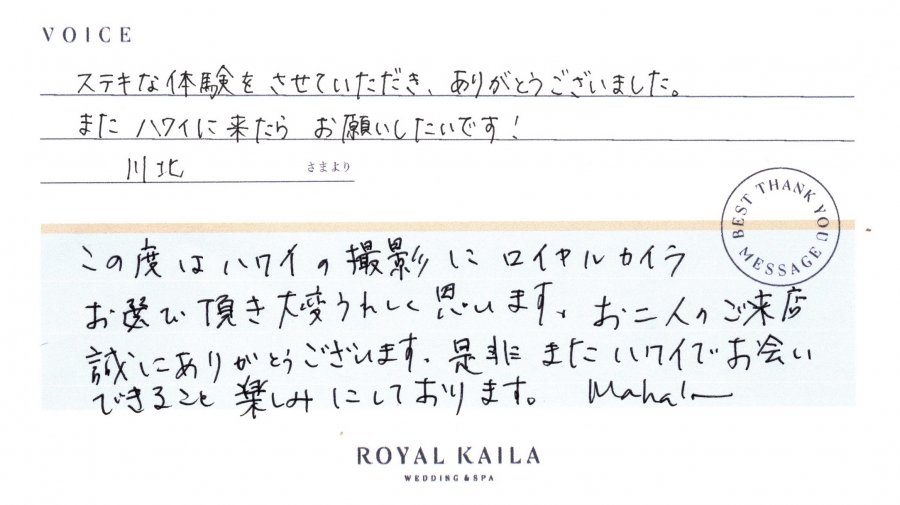 VOICE
ステキな体験をさせていただき、ありがとうございました。
また ハワイに来たら お願いしたいです!
川北 さまより
BEST THANK YOU MESSAGE
この度はハワイの撮影にロイヤルカイラ
お選び頂き大変うれしく思います、お二人のご来店
誠にありがとうございます、是非またハワイでお会い
できること楽しみにしております。 Mahalo
ROYAL KAILA
WEDDING & SPA